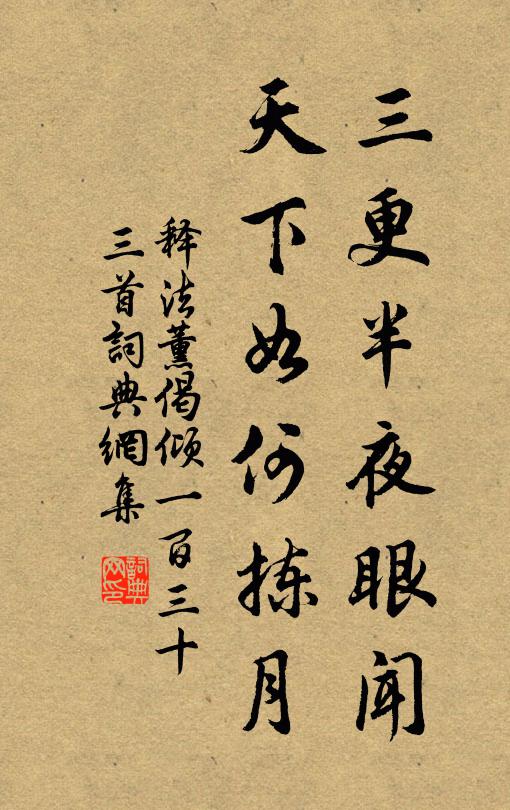 三更半夜眼闻
天下如何拣月
释法薰偈倾一百三十
三首詞典網集
詞典网印